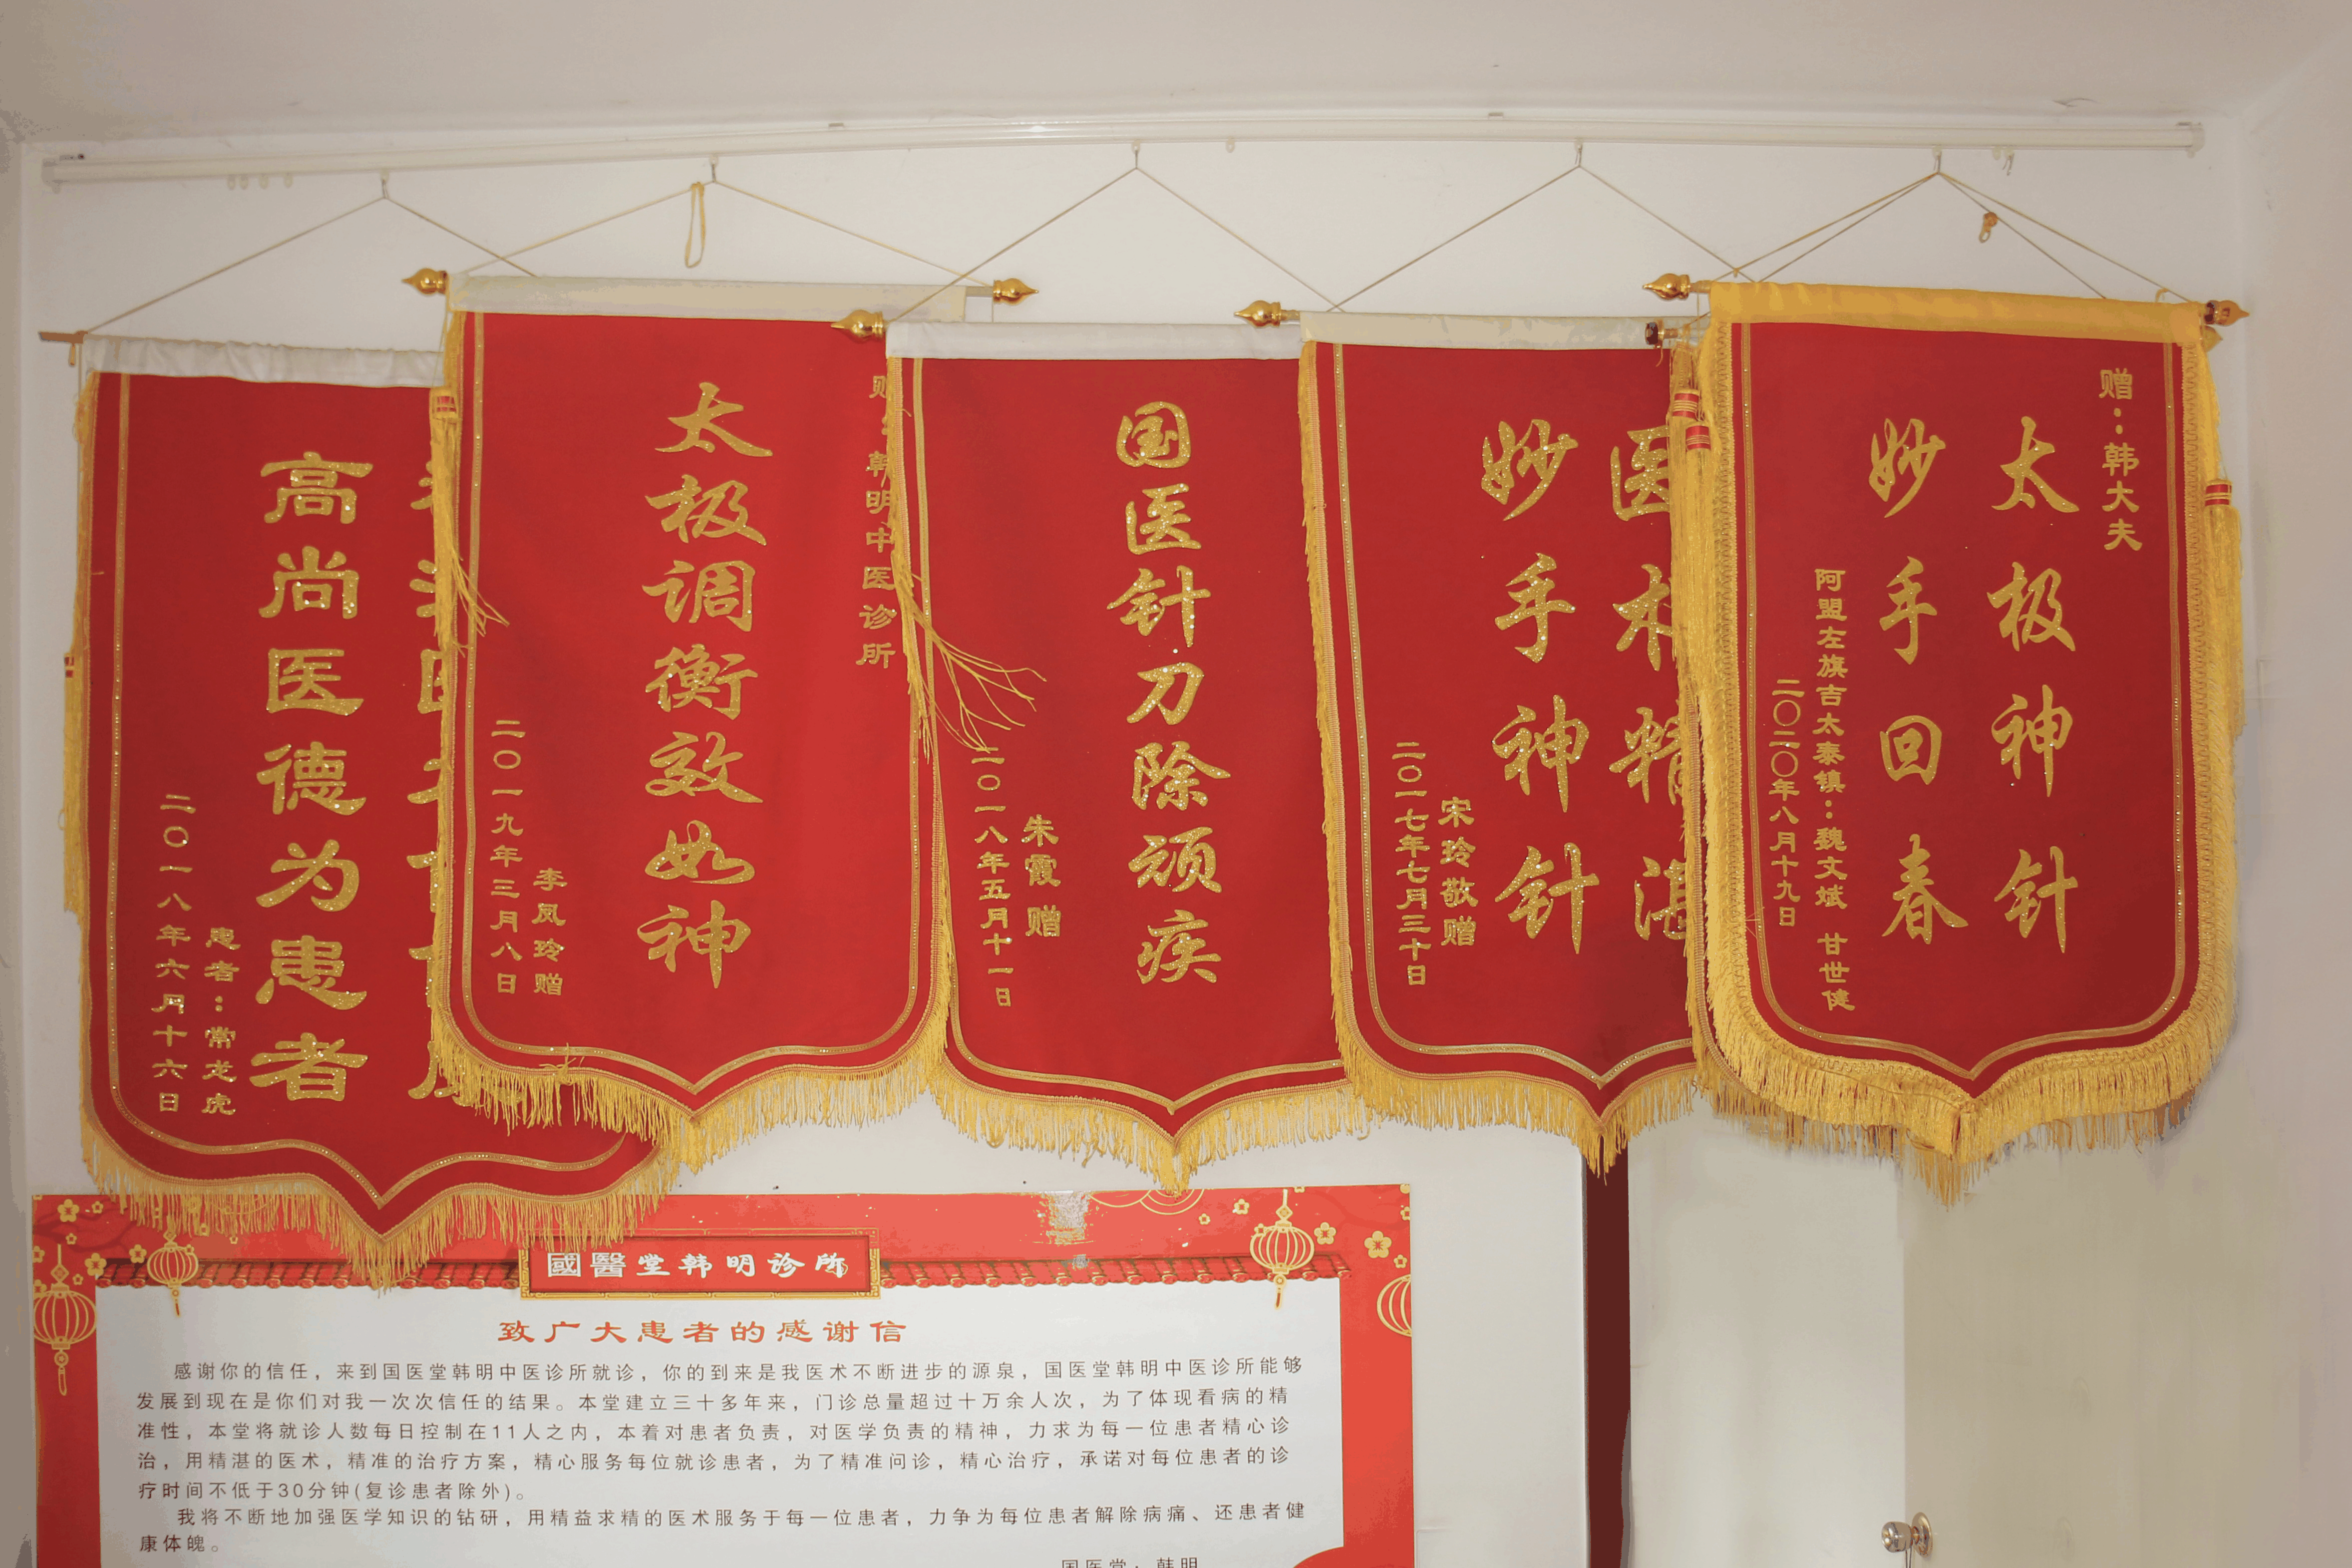 高尚医德为患者
患者：常龙虎
二〇一八年六月十六日
赠：韩明中医诊所
太极调衡效如神
李凤玲赠
二〇一九年三月八日
国医针刀除顽疾
朱霞赠
二〇一八年五月十一日
医术精湛
妙手神针
宋玲敬赠
二〇一七年七月三十日
赠：韩大夫
太极神针
妙手回春
阿盟左旗吉太泰镇：魏文斌 甘世健
二〇二〇年八月十九日
國醫堂韩明诊所
致广大患者的感谢信
感谢你的信任，来到国医堂韩明中医诊所就诊，你的到来是我医术不断进步的源泉，国医堂韩明中医诊所能够
发展到现在是你们对我一次次信任的结果。本堂建立三十多年来，门诊总量超过十万余人次，为了体现看病的精
准性，本堂将就诊人数每日控制在11人之内，本着对患者负责，对医学负责的精神，力求为每一位患者精心诊
治，用精湛的医术，精准的治疗方案，精心服务每位就诊患者，为了精准问诊，精心治疗，承诺对每位患者的诊
疗时间不低于30分钟(复诊患者除外)。
我将不断地加强医学知识的钻研，用精益求精的医术服务于每一位患者，力争为每位患者解除病痛、还患者健
康体魄。
国医堂：韩明